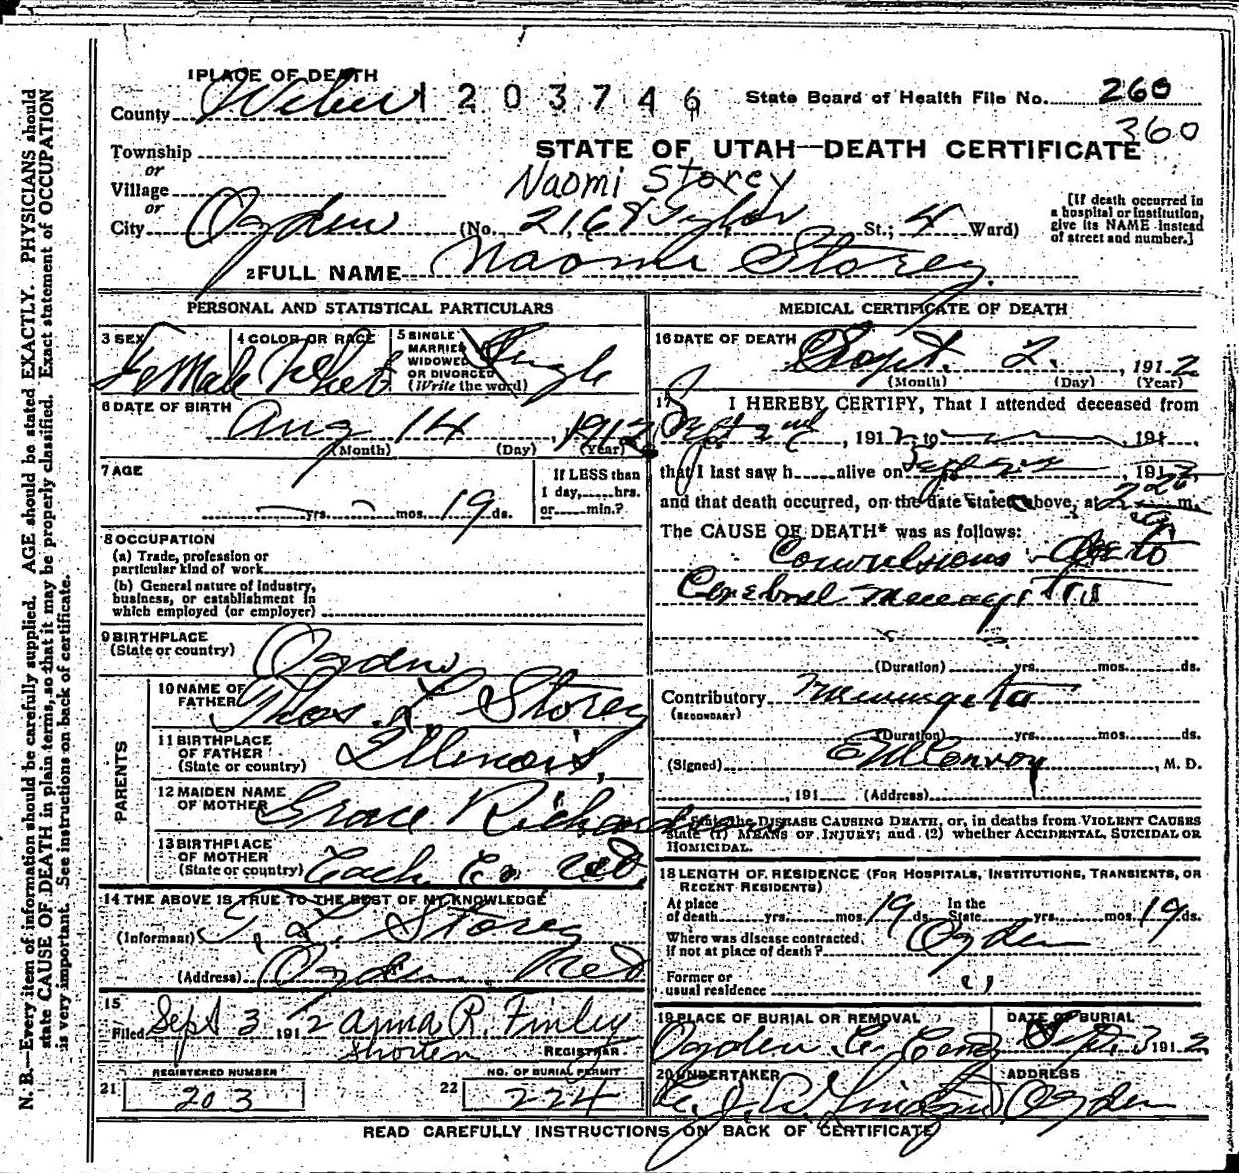 1 PLACE OF DEATH
County Weber 1203746 State Board of Health File No. 260
360
Township
or
STATE OF UTAH—DEATH CERTIFICATE
Village
or
Naomi Storey
City Ogden (No. 2168 Taylor St.; 4 Ward)
[If death occurred in a hospital or institution, give its NAME instead of street and number.]
2 FULL NAME Naomi Storey
PERSONAL AND STATISTICAL PARTICULARS
3 SEX Female
4 COLOR OR RACE White
5 SINGLE MARRIED WIDOWED OR DIVORCED (Write the word) Single
6 DATE OF BIRTH
Aug 14, 1912
(Month) (Day) (Year)
7 AGE
yrs. mos. 19 ds.
If LESS than 1 day, hrs. or min.?
8 OCCUPATION
(a) Trade, profession or particular kind of work
(b) General nature of industry, business, or establishment in which employed (or employer)
9 BIRTHPLACE (State or country) Ogden
PARENTS
10 NAME OF FATHER Thos. L Storey
11 BIRTHPLACE OF FATHER (State or country) Illinois,
12 MAIDEN NAME OF MOTHER Grace Richardson
13 BIRTHPLACE OF MOTHER (State or country) Cach Co
14 THE ABOVE IS TRUE TO THE BEST OF MY KNOWLEDGE
(Informant) T. L. Storey
(Address) Ogden
15
Filed Sept 3 1912 Anna R. Finley
Shorten REGISTRAR
21 REGISTERED NUMBER 203
22 NO. OF BURIAL PERMIT 224
MEDICAL CERTIFICATE OF DEATH
16 DATE OF DEATH Sept. 2, 1912
(Month) (Day) (Year)
17 I HEREBY CERTIFY, That I attended deceased from
Sept 2nd, 1912 to , 191
that I last saw h alive on , 1912,
and that death occurred, on the date stated above, at m.
The CAUSE OF DEATH* was as follows:
Convulsions
Cerebral
(Duration) yrs. mos. ds.
Contributory
(SECONDARY)
(Duration) yrs. mos. ds.
(Signed) E M Conroy, M. D.
, 191 (Address)
* State the DISEASE CAUSING DEATH, or, in deaths from VIOLENT CAUSES
state (1) MEANS OF INJURY; and (2) whether ACCIDENTAL, SUICIDAL OR
HOMICIDAL.
18 LENGTH OF RESIDENCE (FOR HOSPITALS, INSTITUTIONS, TRANSIENTS, OR
RECENT RESIDENTS)
At place of death yrs. mos. 19 ds. In the State yrs. mos. 19 ds.
Where was disease contracted, if not at place of death? Ogden
Former or usual residence
19 PLACE OF BURIAL OR REMOVAL Ogden
DATE OF BURIAL Sept. 3 1912
20 UNDERTAKER
ADDRESS Ogden
READ CAREFULLY INSTRUCTIONS ON BACK OF CERTIFICATE
N. B.—Every item of information should be carefully supplied. AGE should be stated EXACTLY. PHYSICIANS should
state CAUSE OF DEATH in plain terms, so that it may be properly classified. Exact statement of OCCUPATION
is very important. See instructions on back of certificate.